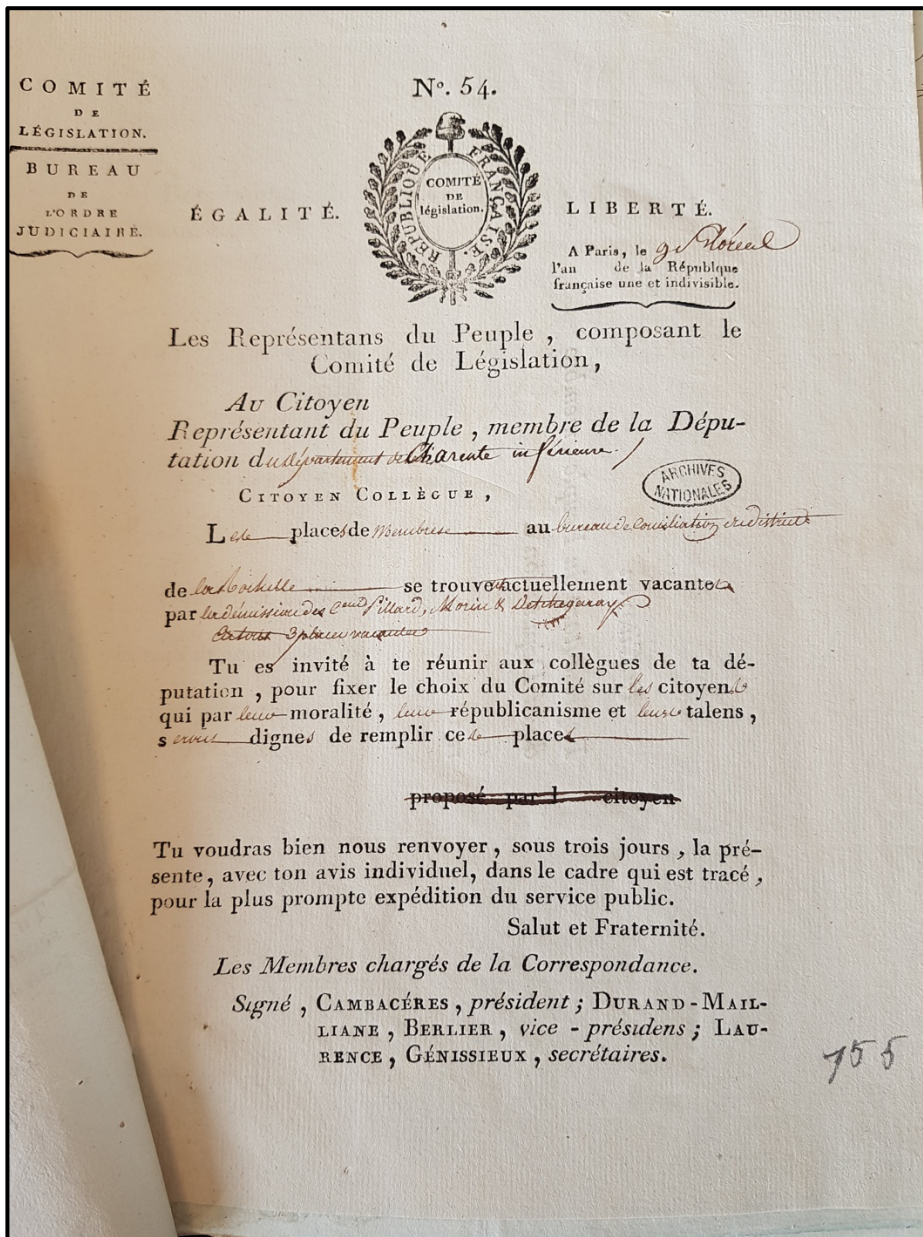 COMITÉ
DE
LÉGISLATION.
BUREAU
DE
L'ORDRE
JUDICIAIRE.
N°. 54.
RÉPUBLIQUE FRANÇAISE.
COMITÉ
DE
législation.
ÉGALITÉ.
LIBERTÉ.
A Paris, le 9 floréal
l'an de la Républque
française une et indivisible.
Les Représentans du Peuple, composant le
Comité de Législation,
Au Citoyen
Représentant du Peuple, membre de la Dépu-
tation du département de Charente inférieure
ARCHIVES
NATIONALES
CITOYEN COLLÈGUE,
Les places de membres au bureau de conciliation du district
de la Rochelle se trouvent actuellement vacantes
par la démission des Cens Pillard, Morin &
3 places vacantes
Tu es invité à te réunir aux collègues de ta dé-
putation, pour fixer le choix du Comité sur les citoyens
qui par leur moralité, leur républicanisme et leurs talens,
seront dignes de remplir ces places
proposé par l citoyen
Tu voudras bien nous renvoyer, sous trois jours, la pré-
sente, avec ton avis individuel, dans le cadre qui est tracé,
pour la plus prompte expédition du service public.
Salut et Fraternité.
Les Membres chargés de la Correspondance.
Signé, CAMBACÉRES, président; DURAND-MAIL-
LIANE, BERLIER, vice-présidens; LAU-
RENCE, GÉNISSIEUX, secrétaires.
155